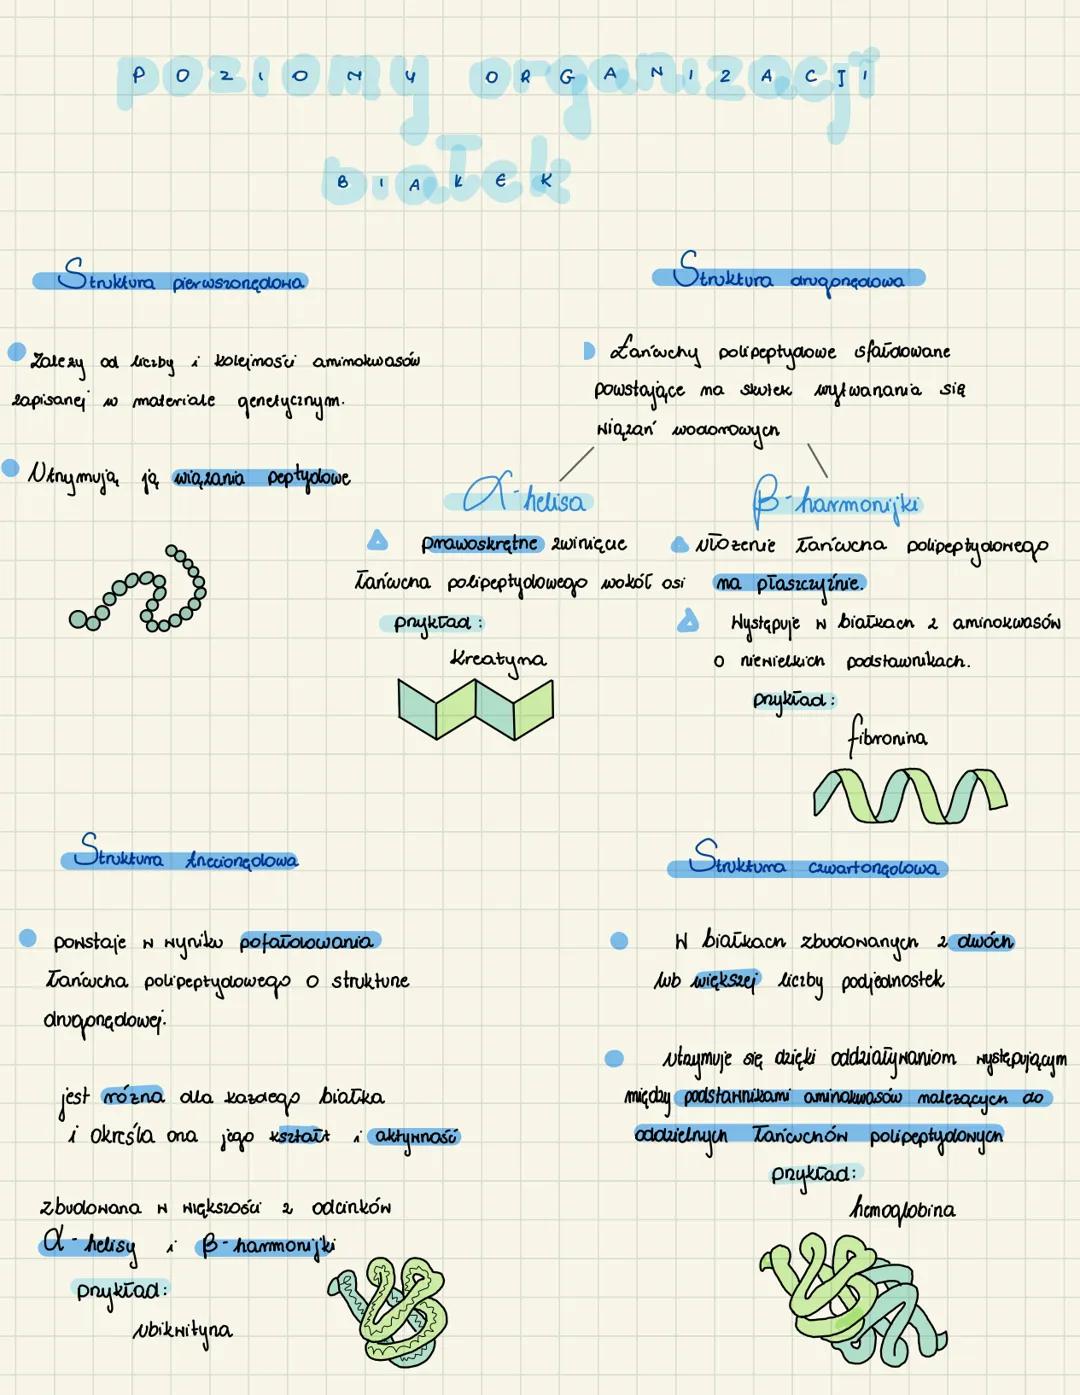 POZIOMY ORGANIZACJI
BIAŁEK
Struktura pierwszorzędowa
Zależy od liczby i kolejności aminokwasów
zapisanej w materiale genetycznym.
Utrzymują ją wiązania peptydowe
Struktura drugorzędowa
Łańcuchy polipeptydowe sfałdowane
powstające na skutek wytwarzania się
wiązań wodorowych
α-helisa
prawoskrętne zwinięcie
łańcucha polipeptydowego wokół osi
przykład:
kreatyna
β-harmonijki
ułożenie łańcucha polipeptydowego
na płaszczyźnie.
Występuje w białkach z aminokwasów
o niewielkich podstawnikach.
przykład:
fibronina
Struktura trzeciorzędowa
powstaje w wyniku pofałdowania
łańcucha polipeptydowego o strukturze
drugorzędowej.
jest różna dla każdego białka
i określa ona jego kształt i aktywność
zbudowana w większości z odcinków
α-helisy i β-harmonijki
przykład:
ubikwityna
Struktura czwartorzędowa
W białkach zbudowanych z dwóch
lub większej liczby podjednostek
utrzymuje się dzięki oddziaływaniom występującym
między podstawnikami aminokwasów należących do
oddzielnych łańcuchów polipeptydowych
przykład:
hemoglobina